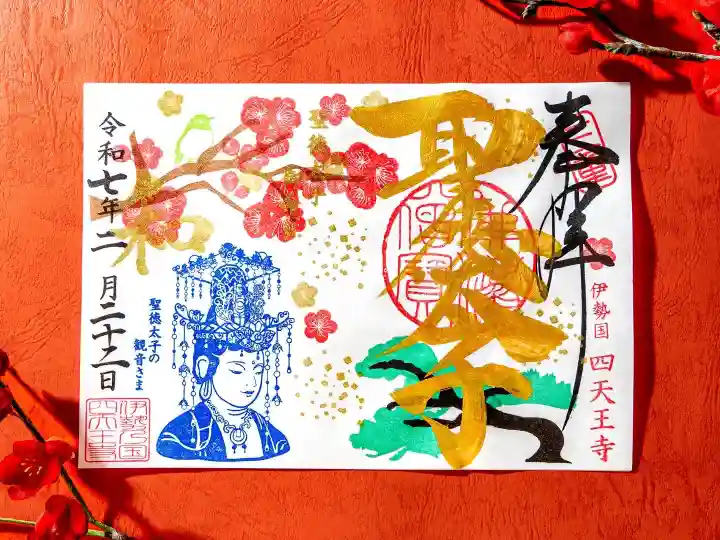 奉拝
伊勢国 四天王寺
聖徳太子
聖徳
和
聖徳太子の
観音さま
令和七年二月二十二日
伊勢乃国
四天王寺